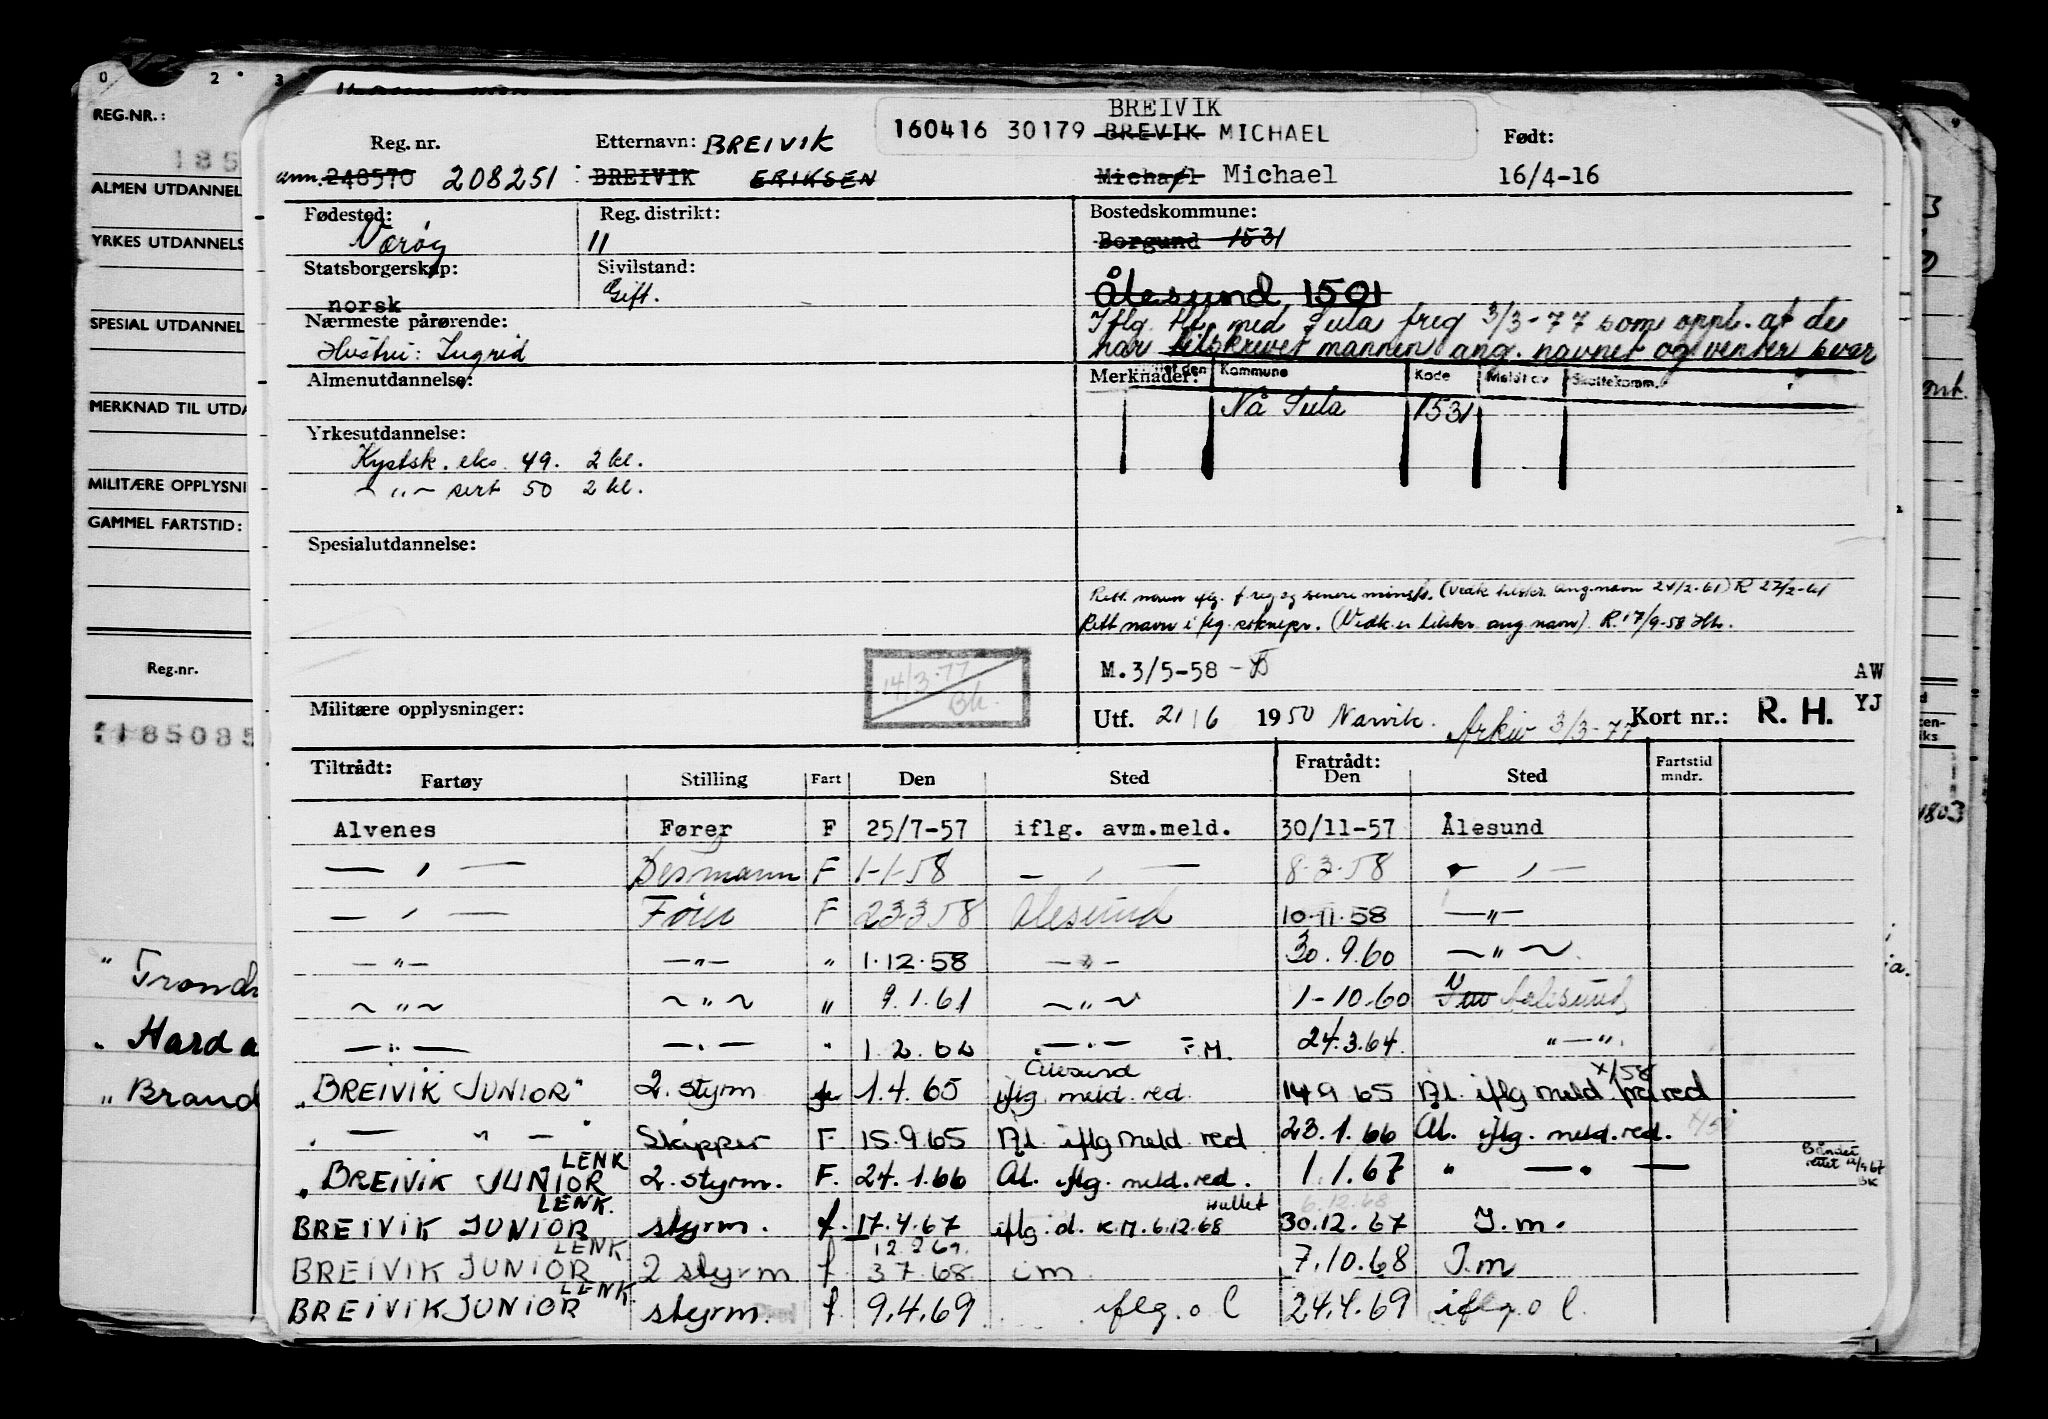 0 2 3
REG.NR.:
185
ALMEN UTDANNEL
YRKES UTDANNELS
SPESIAL UTDANNEL
MERKNAD TIL UTDA
MILITÆRE OPPLYSNI
GAMMEL FARTSTID:
Reg.nr.
185085
" Trondh
" Hard a
" Brand
BREIVIK
160416 30179 BREVIK MICHAEL
Reg. nr. Etternavn: BREIVIK Født:
ann. 248570 208251 BREIVIK ERIKSEN Michael Michael 16/4-16
Fødested: Reg. distrikt: Bostedskommune:
Værøy 11 Borgund 1531
Statsborgerskap: Sivilstand:
norsk Gift. Ålesund 1501
Nærmeste pårørende: Iflg. tlf. med Sula freg 3/3-77 som oppl. at de
Hustru: Ingrid har tilskrevet mannen ang. navnet og venter svar
Almenutdannelse: Merknader: Kommune Kode Meldt av Skattekomm.
Nå Sula 1531
Yrkesutdannelse:
Kystsk. eks. 49. 2 kl.
- " - sert 50 2 kl.
Spesialutdannelse:
Rett navn iflg. freg og senere mønstr. (Vedk tilskr. ang. navn 24/2-61) R 27/2-61
Rett navn iflg. soknepr. (Vedk. er tilskr. ang navn). R. 17/9-58
14/3-77
Bk.
M. 3/5-58 - AW
Militære opplysninger: Utf. 21/6 1950 Narvik. Arkiv 3/3-77 Kort nr.: R. H. YJ
Tiltrådt: Fratrådt:
Fartøy Stilling Fart Den Sted Den Sted Fartstid mndr.
Alvenes Fører F 25/7-57 iflg. avm.meld. 30/11-57 Ålesund
— , — Bestmann F 1-1-58 — , — 8.3.58 — , —
— , — Fører F 23.3.58 Ålesund 10.11.58 — " —
— " — — " — " 1.12.58 — " — 30.9.60 — " —
— " — — " — " 9.1.61 — " — 1-10.60 Ålesund
— . — — . — " — . — F.M. 24.3.64. " — ".
Ålesund
"BREIVIK JUNIOR" 2. styrm 1.4.65 iflg. meld. red. 14.9.65 Ål. iflg meld. fra red
— " — Skipper F 15.9.65 Ål. iflg meld red 23.1.66 Ål. iflg. meld. red.
LENK
"BREIVIK JUNIOR 2. styrm. F. 24.1.66 Ål. iflg. meld. red. 1.1.67 " — " —
LENK.
BREIVIK JUNIOR styrm. f. 17.4.67 iflg. d. k.M. 6.12.68 30.12.67 I.m.
LENK
BREIVIK JUNIOR 2 styrm f 3 7.68 im 7.10.68 I.m
LENK.
BREIVIK JUNIOR styrm. f. 9.4.69 iflg. o l 24.4.69 iflg. o l.
1803